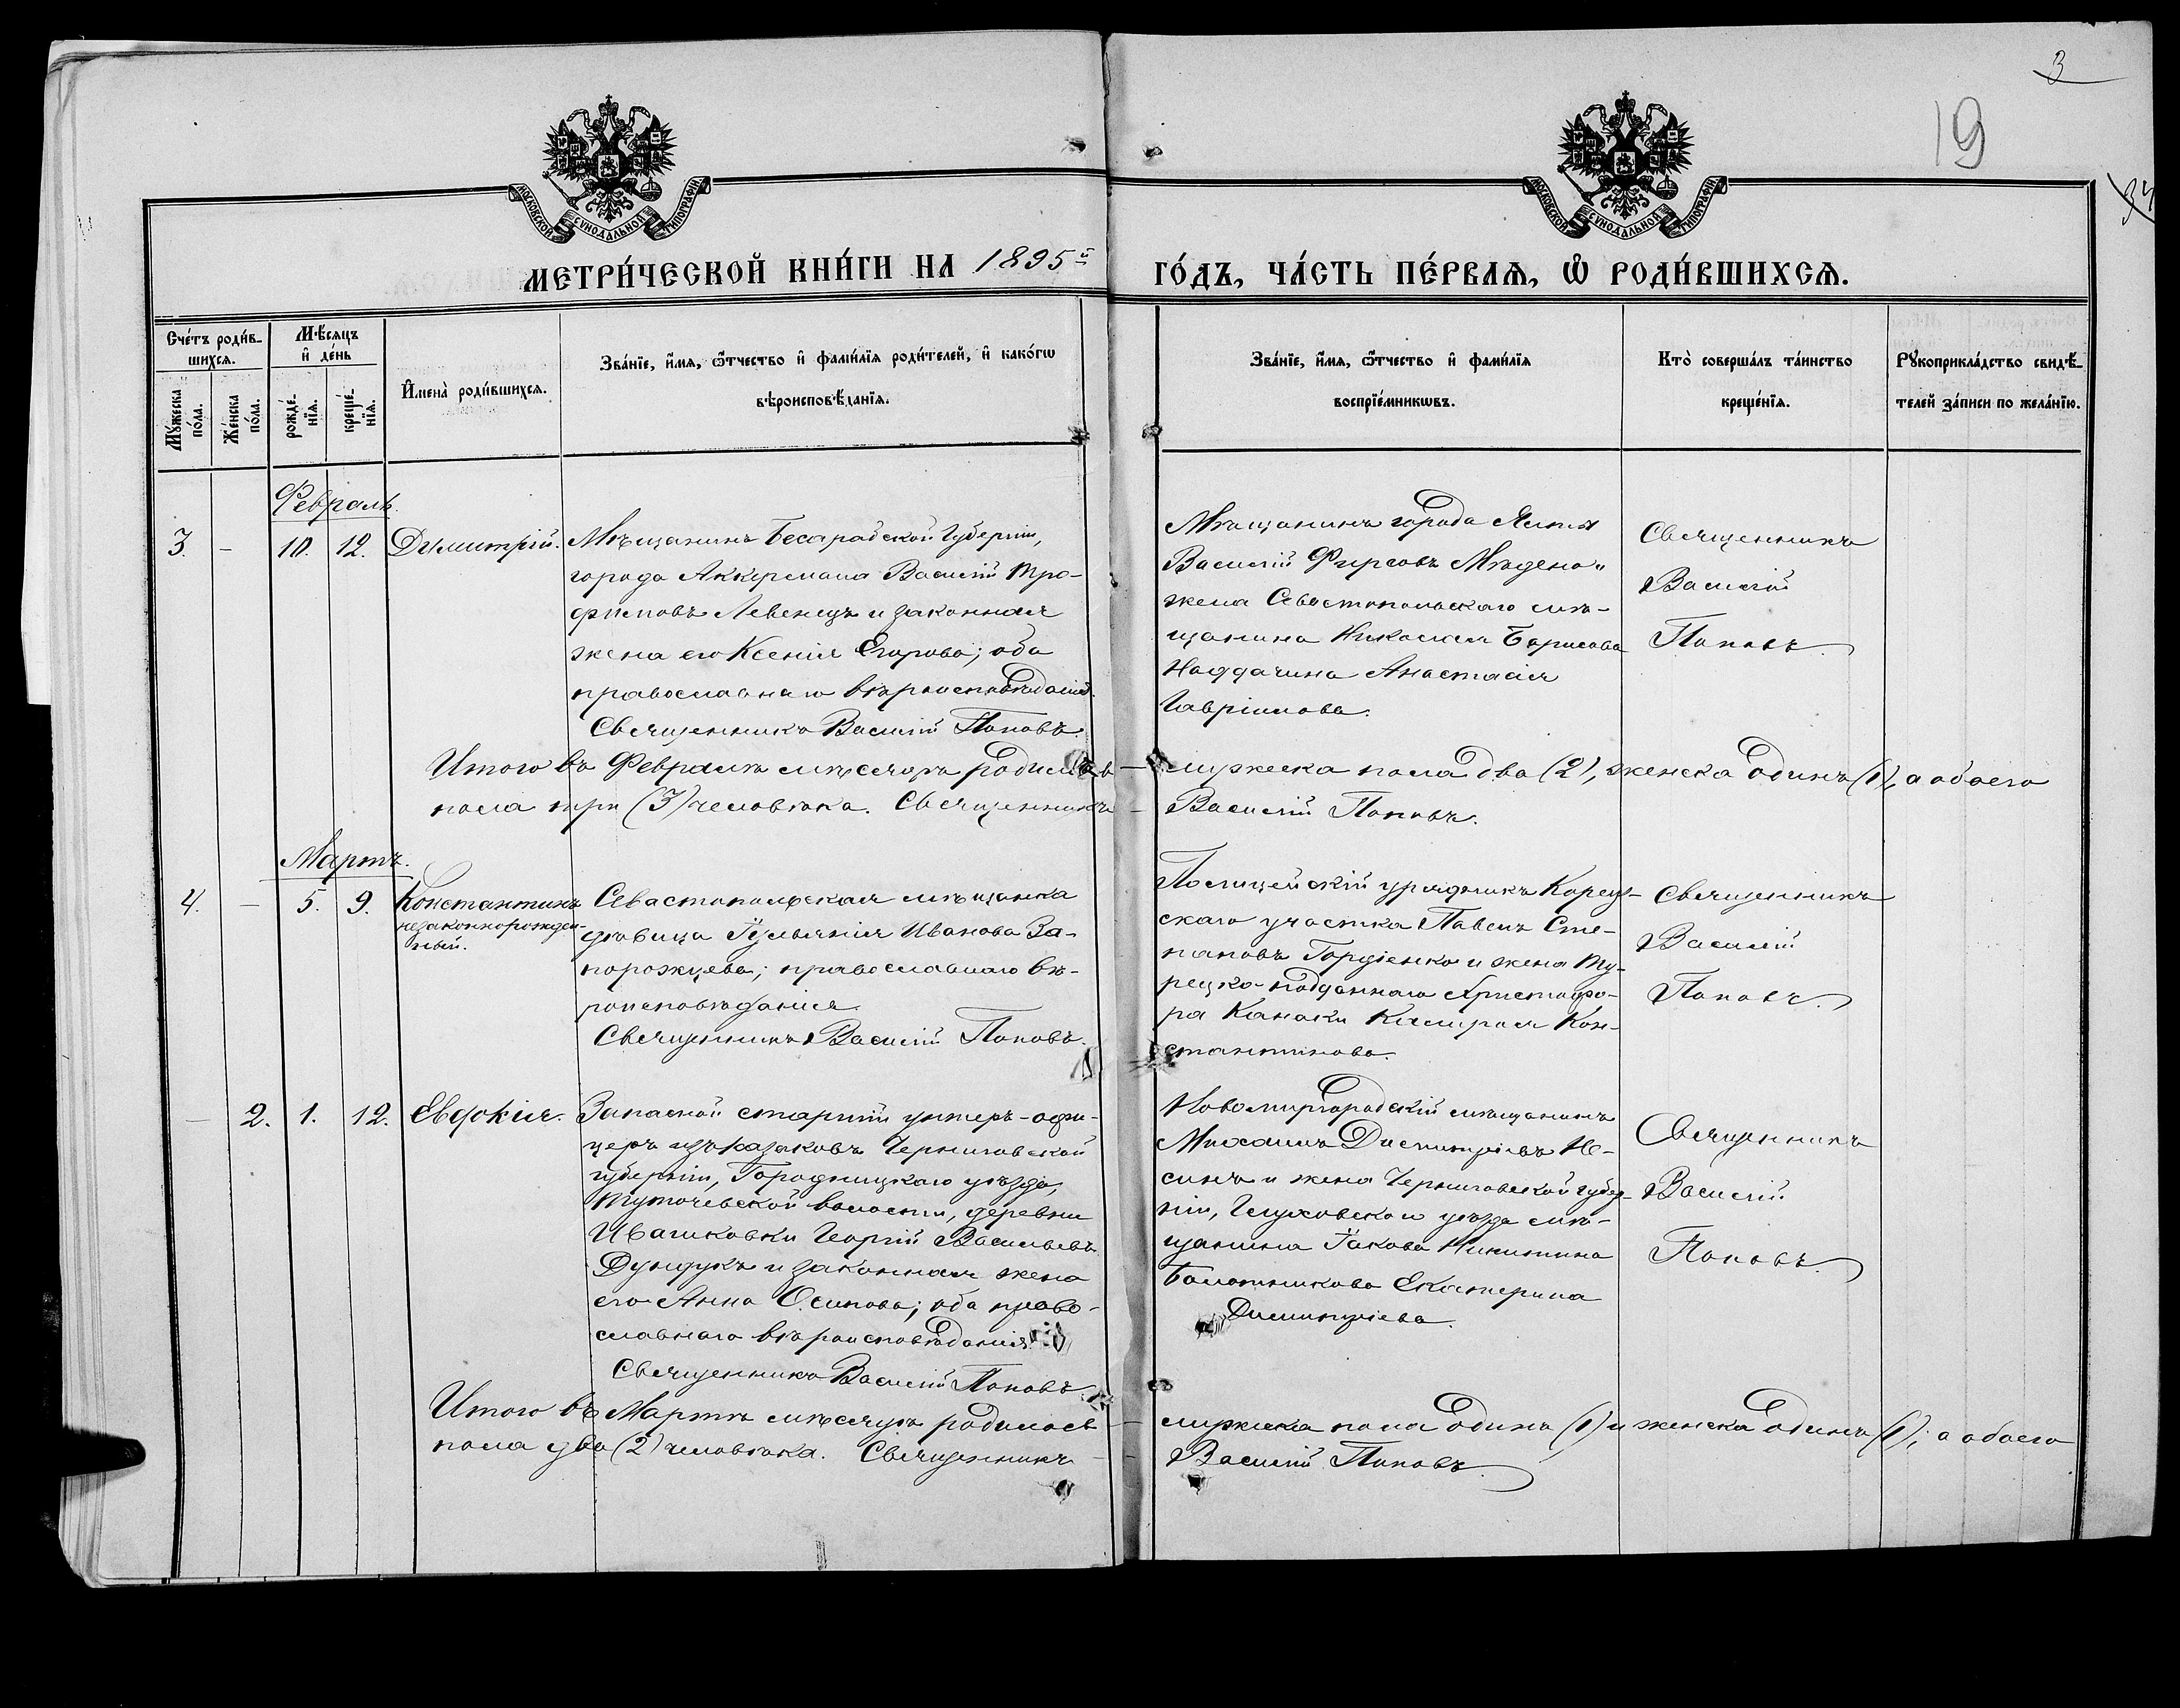 3
19
МОСКОВСКОЙ СѴНОДАЛЬНОЙ ТИПОГРАФІИ
МОСКОВСКОЙ СѴНОДАЛЬНОЙ ТИПОГРАФІИ
МЕТРИ́ЧЕСКОЙ КНИ́ГИ НА 1895й ГО́ДЪ, ЧА́СТЬ ПЕ́РВАѦ, Ѡ҆ РОДИ́ВШИХСѦ.
Сче́тъ роди́в-
шихсѧ.
Мѹ́жеска
по́ла.
Же́нска
по́ла.
Мѣ́сѧцъ
и҆ де́нь
рожде́-
нїѧ.
креще́-
нїѧ.
И҆мена̀ роди́вшихсѧ.
Зва́нїе, и҆́мѧ, ѻ҆́тчество и҆ фами́лїѧ роди́телей, и҆ како́гѡ
вѣроисповѣ́данїѧ.
Зва́нїе, и҆́мѧ, ѻ҆́тчество и҆ фами́лїѧ
воспрїе́мникѡвъ.
Кто̀ соверша́лъ та́инство
креще́нїѧ.
Рѹкоприкла́дство свидѣ́-
телей за́писи по жела́нїю.
Февраль.
3. - 10. 12. Димитрій.
Мѣщанинъ Бесарабской Губерніи,
города Аккермана Василій Тро-
фимовъ Левенецъ и законная
жена его Ксенія Егорова; оба
православнаго вѣроисповѣданія.
Священникъ Василій Поповъ.
Мѣщанинъ города Ялты
Василій Фирсовъ и
жена Севастопольскаго мѣ-
щанина Николая Борисова
Анастасія
Гавріилова.
Священникъ
Василій
Поповъ
Итого въ Февралѣ мѣсяцѣ родилось - мужеска пола два (2), женска одинъ (1), а обоего
пола три (3) человѣка. Священникъ - Василій Поповъ.
Мартъ.
4. - 5. 9. Константинъ
незаконнорожден-
ный.
Севастопольская мѣщанка
дѣвица Іуліанія Иванова За-
порожцева; православнаго вѣ-
роисповѣданія.
Священникъ Василій Поповъ.
Полицейскій урядникъ
скаго участка Павелъ Сте-
пановъ Гордіенко и жена Ту-
рецко-подданнаго Христофо-
ра Канаки Кон-
стантинова.
Священникъ
Василій
Поповъ.
- 2. 1. 12. Евдокія.
Запасной старшій унтеръ-офи-
церъ изъ казаковъ Черниговской
губерніи, Городницкаго уѣзда,
Тупичевской волости, деревни
Ивашковки Георгій Васильевъ
Дундукъ и законная жена
его Анна Осипова; оба право-
славнаго вѣроисповѣданія.
Священникъ Василій Поповъ.
Новомиргородскій мѣщанинъ
Михаилъ Димитріевъ Не-
синъ и жена Черниговской губер-
ніи, Глуховскаго уѣзда мѣ-
щанина Іакова Никитина
Болотникова Екатерина
Димитріева.
Священникъ
Василій
Поповъ.
Итого въ Мартѣ мѣсяцѣ родилось - мужеска пола одинъ (1) и женска одинъ (1); а обоего
пола два (2) человѣка. Священникъ - Василій Поповъ.